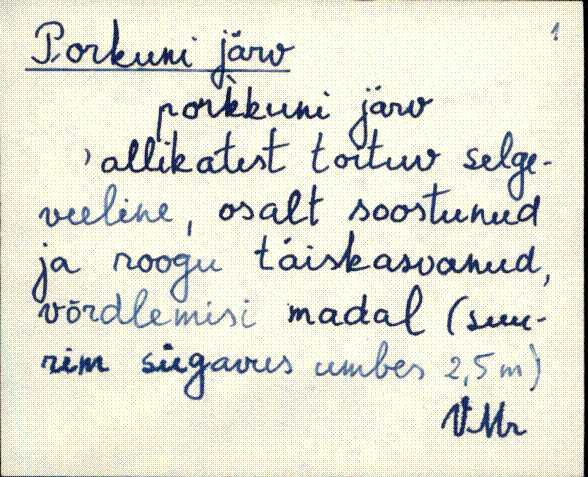 1
Porkuni järv
por̀kkuni järv
, allikatest toituv selge-
veeline, osalt soostunud
ja roogu täiskasvanud,
võrdlemisi madal (suu-
rim sügavus umbes 2,5 m)
VMr